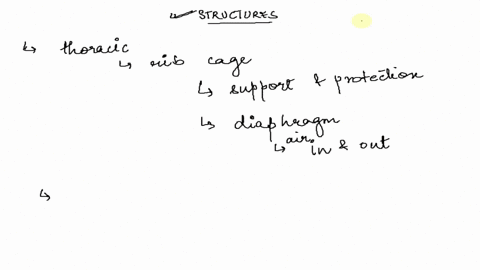 STRUCTURES
↳ thoracic
↳ rib cage
↳ support & protection
↳ diaphragm
↳ air in & out
↳